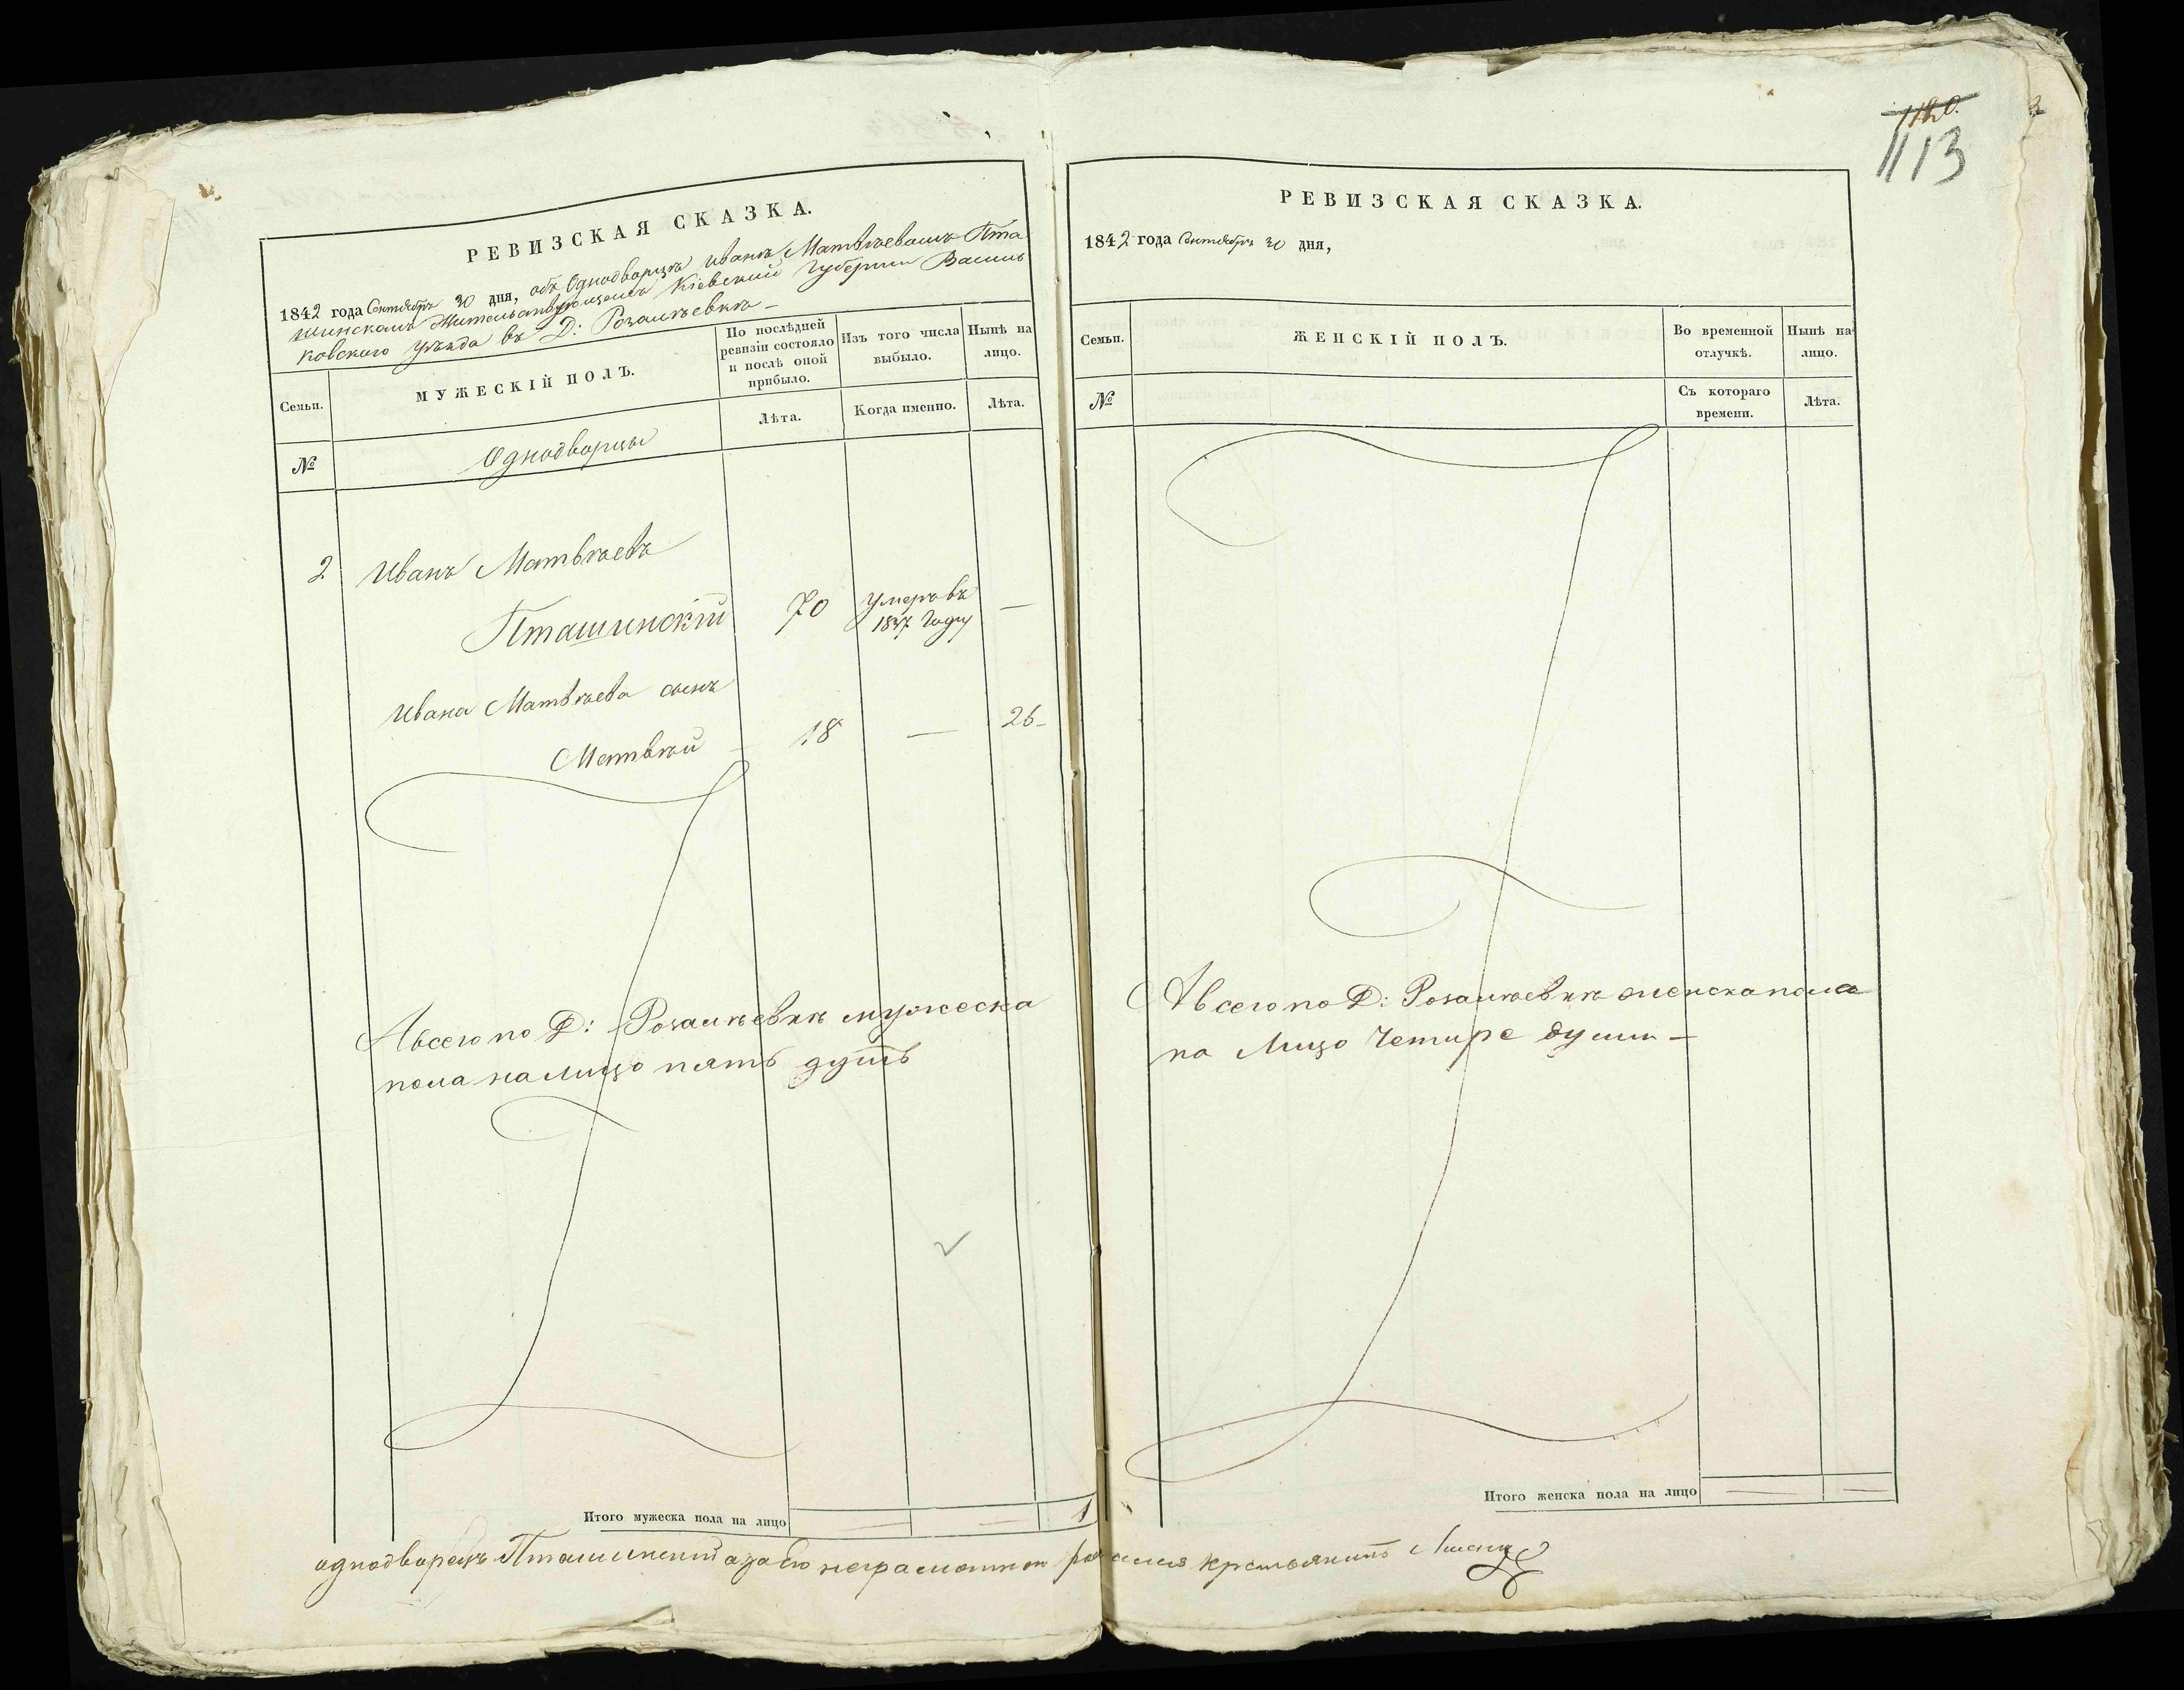 1120.
1113
РЕВИЗСКАЯ СКАЗКА.
1842 года Сентября 30 дня, объ Однодворцѣ Иванѣ Матвѣевомъ Пта
шинскомъ Жительствующемъ Кіевской Губерніи Василь
ковского уѣзда въ Д: Розалѣевкѣ —
Семьи.
МУЖЕСКІЙ ПОЛЪ.
По послѣдней
ревизіи состояло
и послѣ оной
прибыло.
Изъ того числа
выбыло.
Нынѣ на
лицо.
№
Однодворцы
Лѣта.
Когда именно.
Лѣта.
2 Иванъ Матвѣевъ
Пташинскій 70 умеръ въ
1837 Году —
Ивана Матвѣева сынъ
Матвѣй — 18 — 26 -
А всего по Д: Розалѣевкѣ мужеска
пола на лицо пять душъ
Итого мужеска пола на лицо — — 1
РЕВИЗСКАЯ СКАЗКА.
1842 года Сентября 30 дня,
Семьи.
ЖЕНСКІЙ ПОЛЪ.
Во временной
отлучкѣ.
Нынѣ на
лицо.
№
Съ котораго
времени.
Лѣта.
А всего по Д: Розалѣевкѣ женска пола
на Лицо Четыре души —
Итого женска пола на лицо — —
однодворецъ Пташинскій а за его неграмотнои крестьянинъ